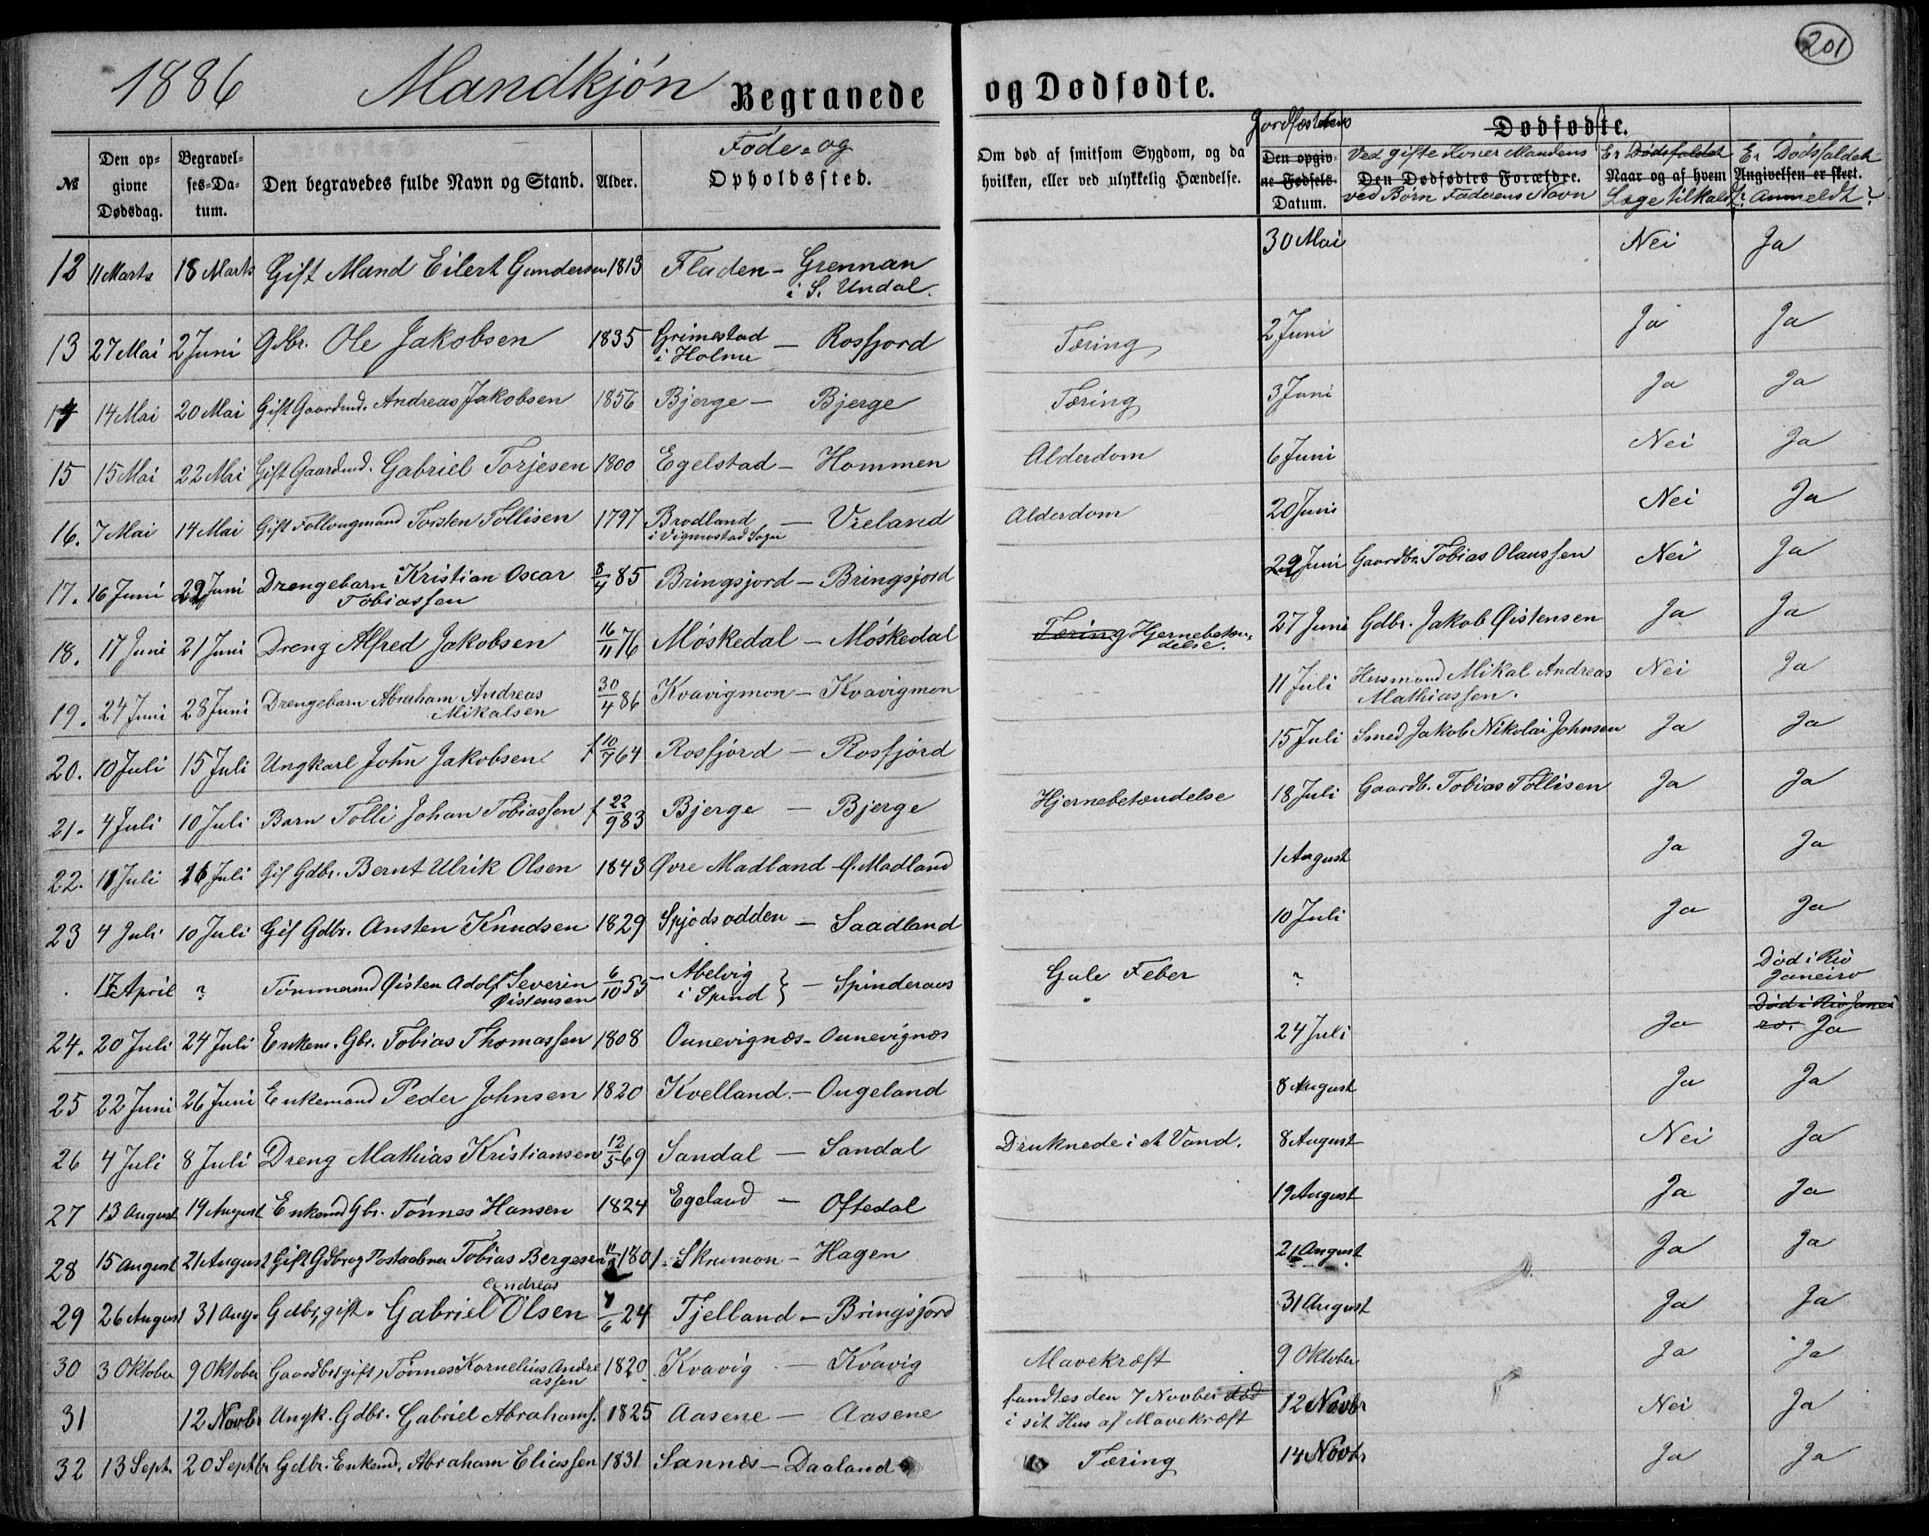 201
1886 Mandkjøn Begravede og Dødfødte.
№ Den opgivne Dødsdag. Begravelses-Datum. Den begravedes fulde Navn og Stand. Alder. Føde- og Opholdssted. Om død af smitsom Sygdom, og da hvilken, eller ved ulykkelig Hændelse. Jordfæstelses Den opgivne Fødsels-Datum. Dødfødte. Ved gifte Koner Mandens Den Dødfødtes Forældre. ved Børn Faderens Navn Er Dødsfaldet Naar og af hvem Læge tilkaldt? Er Dødsfaldet Angivelsen er skeet. anmeldt?
12 11 Marts 18 Marts Gift Mand Eilert Gundersen 1813 Fladen - Grennan i S. Undal. 30 Mai Nei Ja
13 27 Mai 2 Juni Gdbr. Ole Jakobsen 1835 Grimestad i Holme - Rosfjord Tæring 2 Juni Ja Ja
14 14 Mai 20 Mai Gift Gaardmd. Andreas Jakobsen 1856 Bjerge - Bjerge Tæring 3 Juni Ja Ja
15 15 Mai 22 Mai Gift Gaardmd. Gabriel Torjesen 1800 Egelstad - Hommen Alderdom 6 Juni Nei Ja
16. 7 Mai 14 Mai Gift Follougmand Torsten Tollisen 1797 Brodland i Vigmostad Sogn - Vreland Alderdom 20 Juni Nei Ja
17. 16 Juni 22 Juni Drengebarn Kristian Oscar Tobiassen 8/4 85 Bringsjord - Bringsjord 22 Juni Gaardbr. Tobias Olaussen Nei Ja
18. 17 Juni 21 Juni Dreng Alfred Jakobsen 16/11 76 Møskedal - Møskedal Tæring Hjernebetændelse. 27 Juni Gdbr. Jakob Øistensen Ja Ja
19. 24 Juni 28 Juni Drengebarn Abraham Andreas Mikalsen 30/4 86 Kvavigmon - Kvavigmon 11 Juli Husmand Mikal Andreas Mathiassen. Nei Ja
20. 10 Juli 15 Juli Ungkarl John Jakobsen f 10/9 64 Rosfjord - Rosfjord 15 Juli Smed Jakob Nikolai Johnsen Ja Ja
21. 4 Juli 10 Juli Barn Tolli Johan Tobiassen f 22/9 83 Bjerge - Bjerge Hjernebetændelse 18 Juli Gaardb. Tobias Tollisen Ja Ja
22. 11 Juli 16 Juli Gif Gdbr. Bernt Ulrik Olsen 1843 Øvre Madland - Ø. Madland 1 August Ja Ja
23 4 Juli 10 Juli Gif Gdbr. Ansten Knudsen 1829 Spjodsodden - Saadland 10 Juli Ja Ja
17 April ? Tømmermd Øisten Adolf Severin Øistensen 6/10 55 - Abelvig i Spind } - Spinderaus Gule Feber ? Død i Rio Janeiro
24. 20 Juli 24 Juli Enkem. Gbr. Tobias Thomassen 1808 Ounevignæs - Ounevignæs 24 Juli Ja Død i Rio Janeiro. Ja
25 22 Juni 26 Juni Enkemand Peder Johnsen 1820 Kvelland - Ougeland 8 August Ja Ja
26 4 Juli 8 Juli Dreng Mathias Kristiansen 12/5 69 Sandal - Sandal Druknede i et Vand. 8 August Nei Ja
27 13 August 19 August Enkemd Gbr. Tønnes Hansen 1824 Egeland - Oftedal 19 August Ja Ja
28 15 August 21 August Gift Gdbr og Postaabner Tobias Bergesen 1801. Skrumon - Hagen 21 August Ja Ja
29 26 August 31 Aug. Gdbr, gift. Gabriel Andreas Olsen 7/6 24 Tjelland - Bringsjord 31 August Ja Ja
30 3 Oktober 9 Oktober Gaardbr (gift) Tønnes Kornelius Andreassen 1820 Kvavig - Kvavig Mavekræft 9 Oktober Ja Ja
31 12 Novbr Ungk. Gdbr. Gabriel Abrahams. 1825 Aasene - Aasene fandtes den 7 Novber død i sit Hus af Mavekræft 12 Novbr Nei Ja
32 13 Sept. 20 Septbr Gdbr. Enkemd. Abraham Eliassen 1831 Sannes - Daaland Tæring 14 Novbr Ja Ja